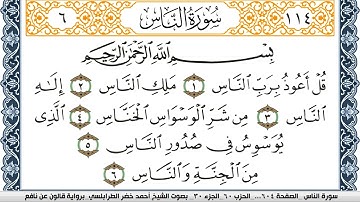 ١١٤ سُورَةُ النَّاسِ ٦
بِسْمِ اللَّهِ الرَّحْمَٰنِ الرَّحِيمِ
قُلْ أَعُوذُ بِرَبِّ النَّاسِ ١ مَلِكِ النَّاسِ ٢ إِلَٰهِ
النَّاسِ ٣ مِن شَرِّ الْوَسْوَاسِ الْخَنَّاسِ ٤ الَّذِي
يُوَسْوِسُ فِي صُدُورِ النَّاسِ ٥
مِنَ الْجِنَّةِ وَالنَّاسِ ٦
سورة الناس .. الصفحة ٦٠٤ .... الحزب ٦٠ .. الجزء ٣٠ .. بصوت الشيخ أحمد خضر الطرابلسي .. برواية قالون عن نافع